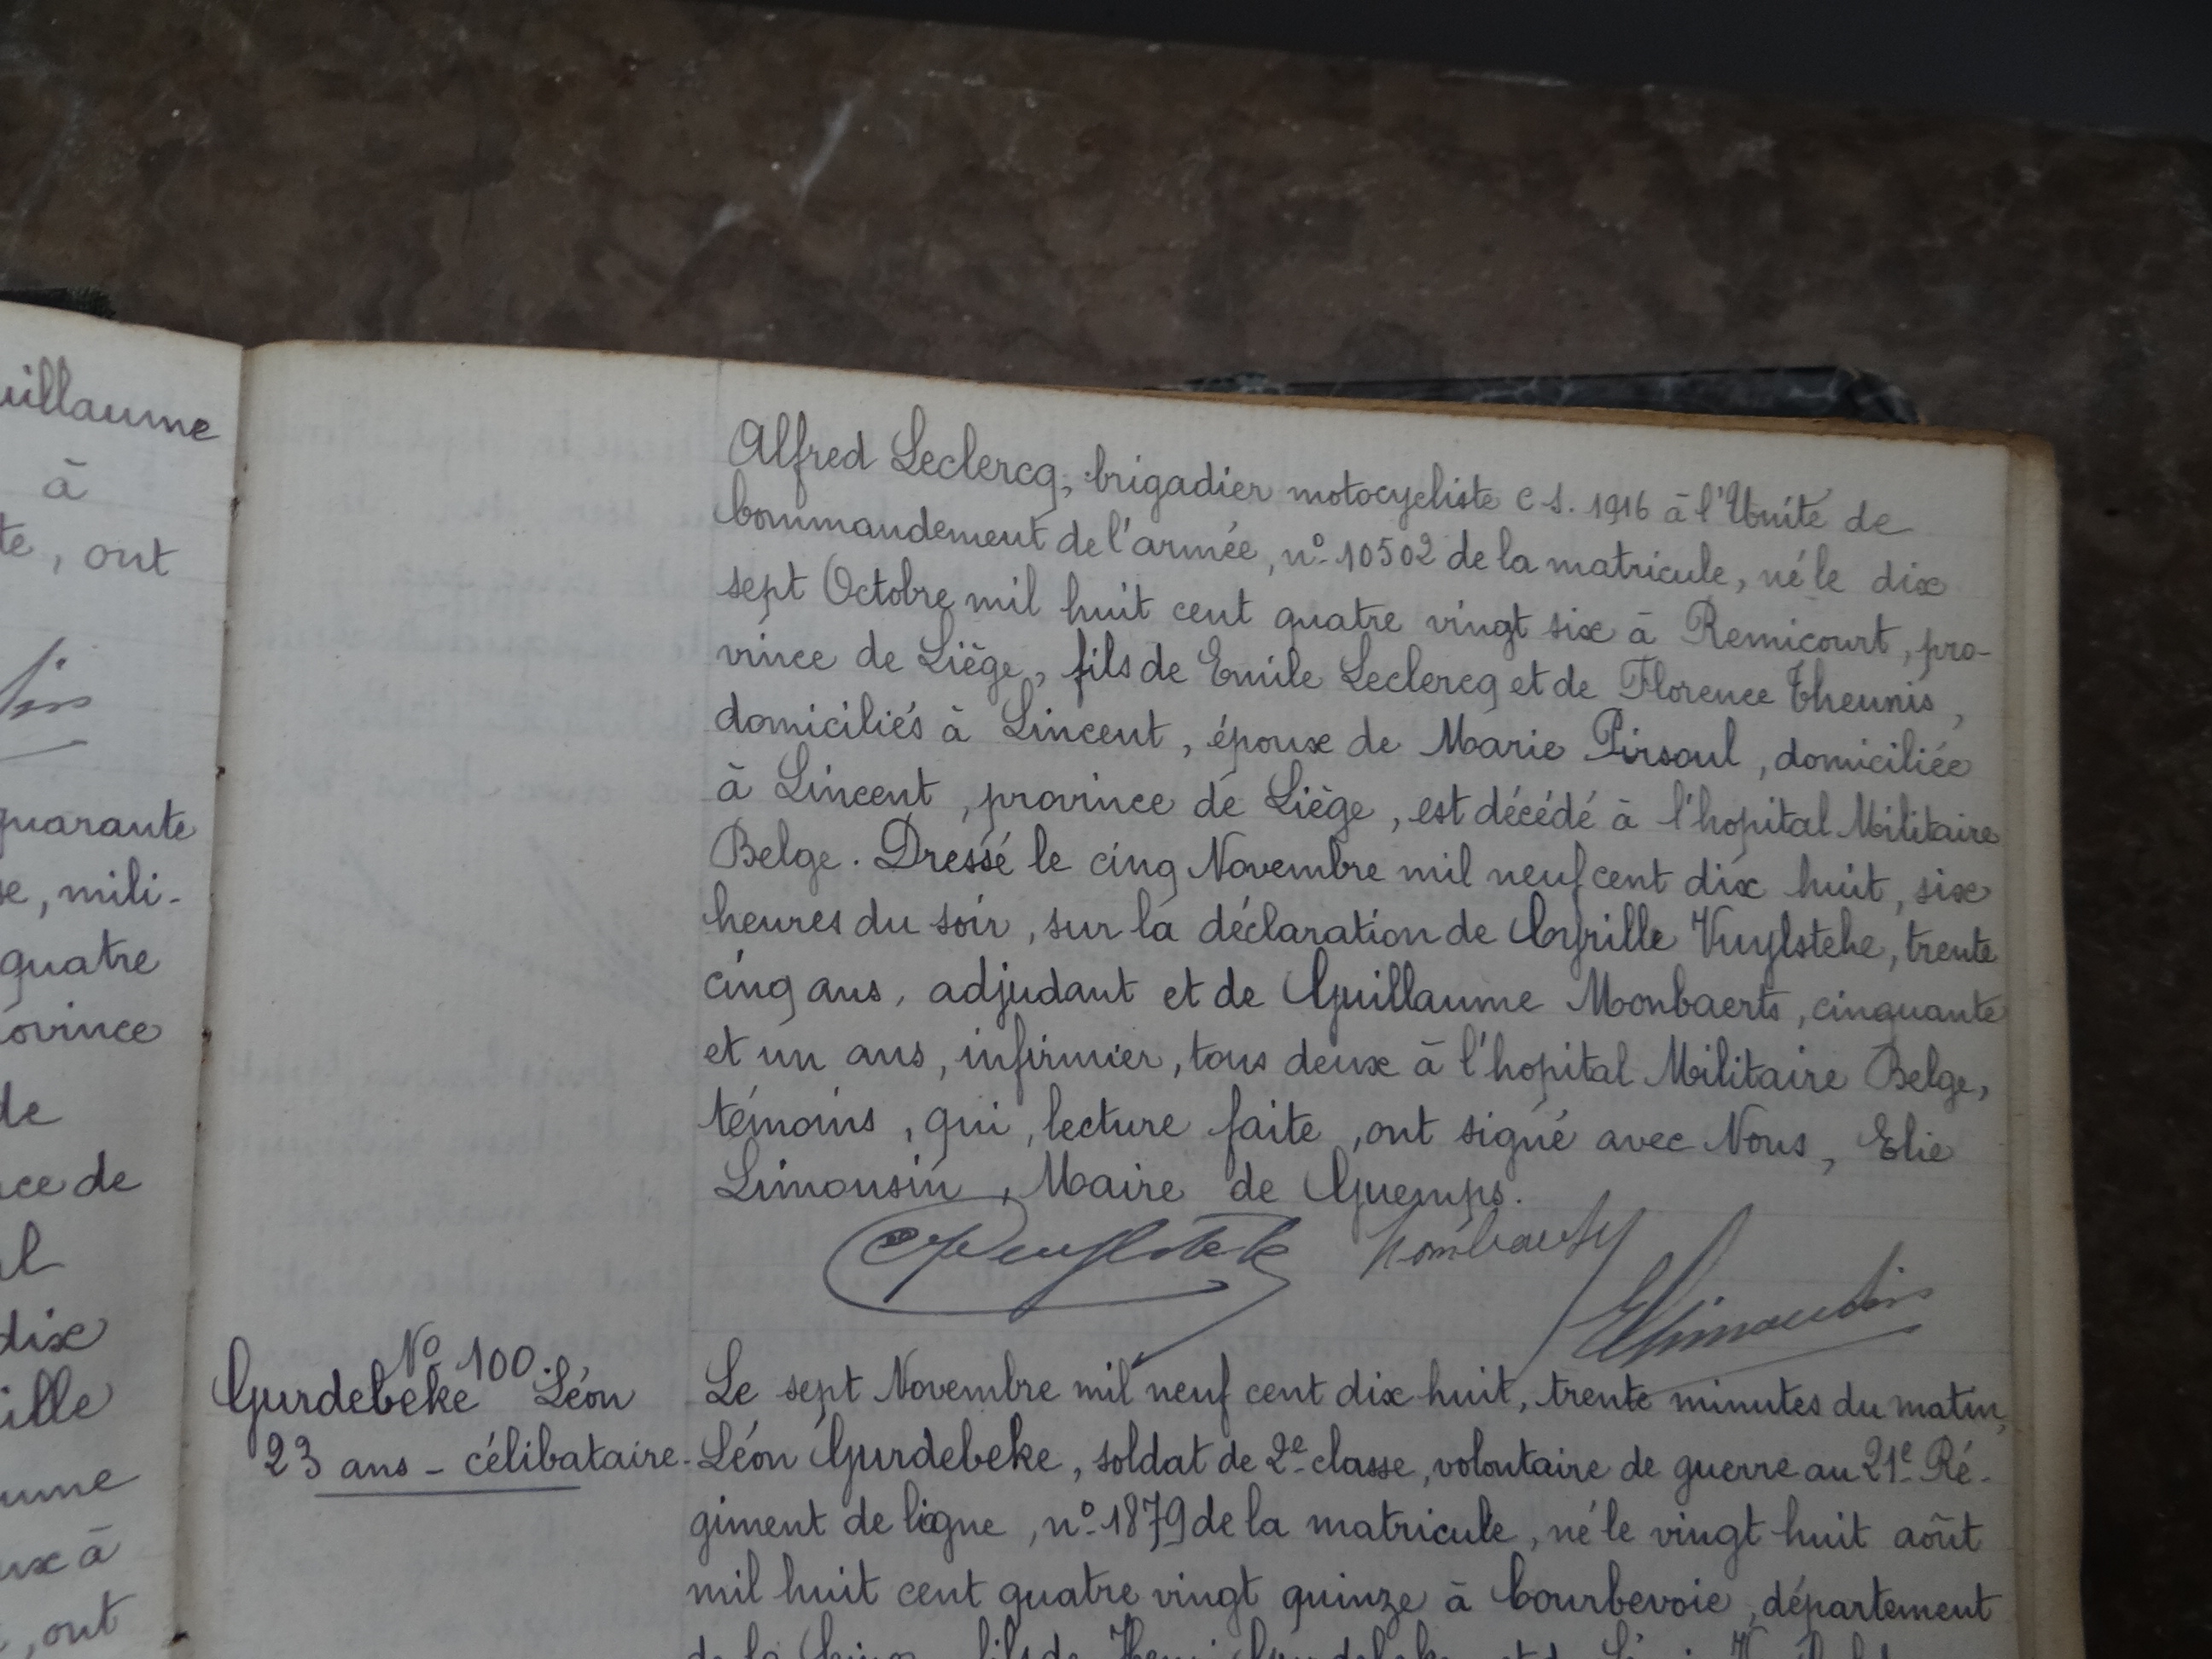 uillaume
à
te, ont
quarante
se, mili-
quatre
ovince
de
ce de
al
dix
ille
ume
ux à
, ont
Alfred Leclercq, brigadier motocycliste C S. 1916 à l'Unité de
Commandement de l'armée, nº 10502 de la matricule, né le dix
sept Octobre mil huit cent quatre vingt six à Remicourt, pro-
vince de Liège, fils de Emile Leclercq et de Florence Theunis,
domiciliés à Lincent, époux de Marie Pirsoul, domiciliée
à Lincent, province de Liège, est décédé à l'hopital Militaire
Belge. Dressé le cinq Novembre mil neuf cent dix huit, six
heures du soir, sur la déclaration de Cyrille Vuylsteke, trente
cinq ans, adjudant et de Guillaume Monbaerts, cinquante
et un ans, infirmier, tous deux à l'hopital Militaire Belge,
témoins, qui, lecture faite, ont signé avec Nous, Elie
Limousin, Maire de Guemps.
ELimousin
Nº 100.
Gurdebeke Léon
23 ans - célibataire.
Le sept Novembre mil neuf cent dix huit, trente minutes du matin,
Léon Gurdebeke, soldat de 2e classe, volontaire de guerre au 21e Ré-
giment de ligne, nº 1879 de la matricule, né le vingt huit août
mil huit cent quatre vingt quinze à Courbevoie, département
de la Seine, fils de Henri Gurdebeke et de